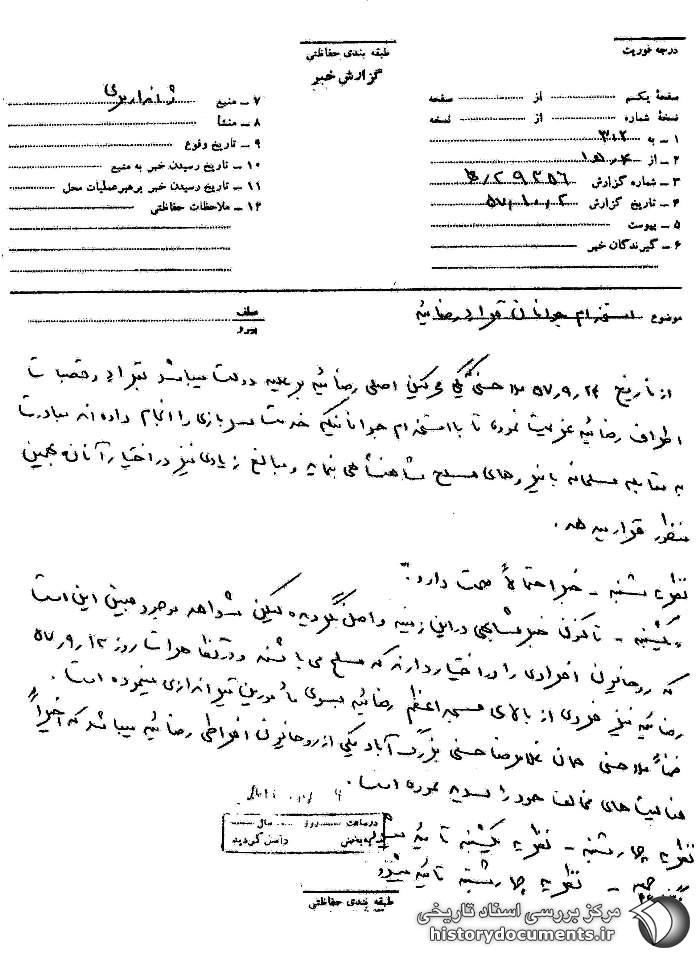 درجه فوریت
طبقه بندی حفاظتی
گزارش خبر
صفحهٔ یکم ............ از ............ صفحه
نسخهٔ شماره ............ از ............ نسخه
۱ - به ۳۱۲
۲ - از ۱۵ﻫ۴
۳ - شماره گزارش ۲۹۲۵۶/ﻫ
۴ - تاریخ گزارش ۵۷٫۱۰٫۲
۵ - پیوست
۶ - گیرندگان خبر
۷ - منبع ژاندارمری
۸ - منشأ
۹ - تاریخ وقوع
۱۰ - تاریخ رسیدن خبر به منبع
۱۱ - تاریخ رسیدن خبر برهبر عملیات محل
۱۲ - ملاحظات حفاظتی
موضوع استخدام جوانان قراء رضائیه
عطف
پیرو
از تاریخ ۵۷٫۹٫۲۴ ملا حسنی یکی محرکین اصلی رضائیه بر علیه دولت میباشد بقراء و قصبات
اطراف رضائیه عزیمت نموده تا با استخدام جوانانیکه خدمت سربازی را انجام داده اند مبادرت
به مقابله مسلحانه با نیروهای مسلح شاهنشاهی نماید و مبالغ زیادی نیز در اختیار آنان بهمین
منظور قرار میدهد.
نظریه شنبه - خبر احتمالاً صحت دارد.
یکشنبه - تاکنون خبر مشابهی در این زمینه واصل نگردیده لیکن شواهد موجود مبین این است
که روحانیون افرادی را در اختیار دارند که مسلح می باشند و در تظاهرات روز ۵۷٫۹٫۱۲
رضائیه نیز فردی از بالای مسجد اعظم رضائیه بسوی مأمورین تیراندازی مینموده است.
ضمناً ملا حسنی همان غلامرضا حسنی بزرگ آباد یکی از روحانیون افراطی رضائیه میباشد که اخیراً
فعالیت های مخالف خود را تشدید نموده است.
در ساعت ...... روز ...... سال ......
به بخش واصل گردید
نظریه چهارشنبه - نظریه یکشنبه تائید میشود
جمعه - نظریه چهارشنبه تائید میشود
طبقه بندی حفاظتی
مرکز بررسی اسناد تاریخی
historydocuments.ir